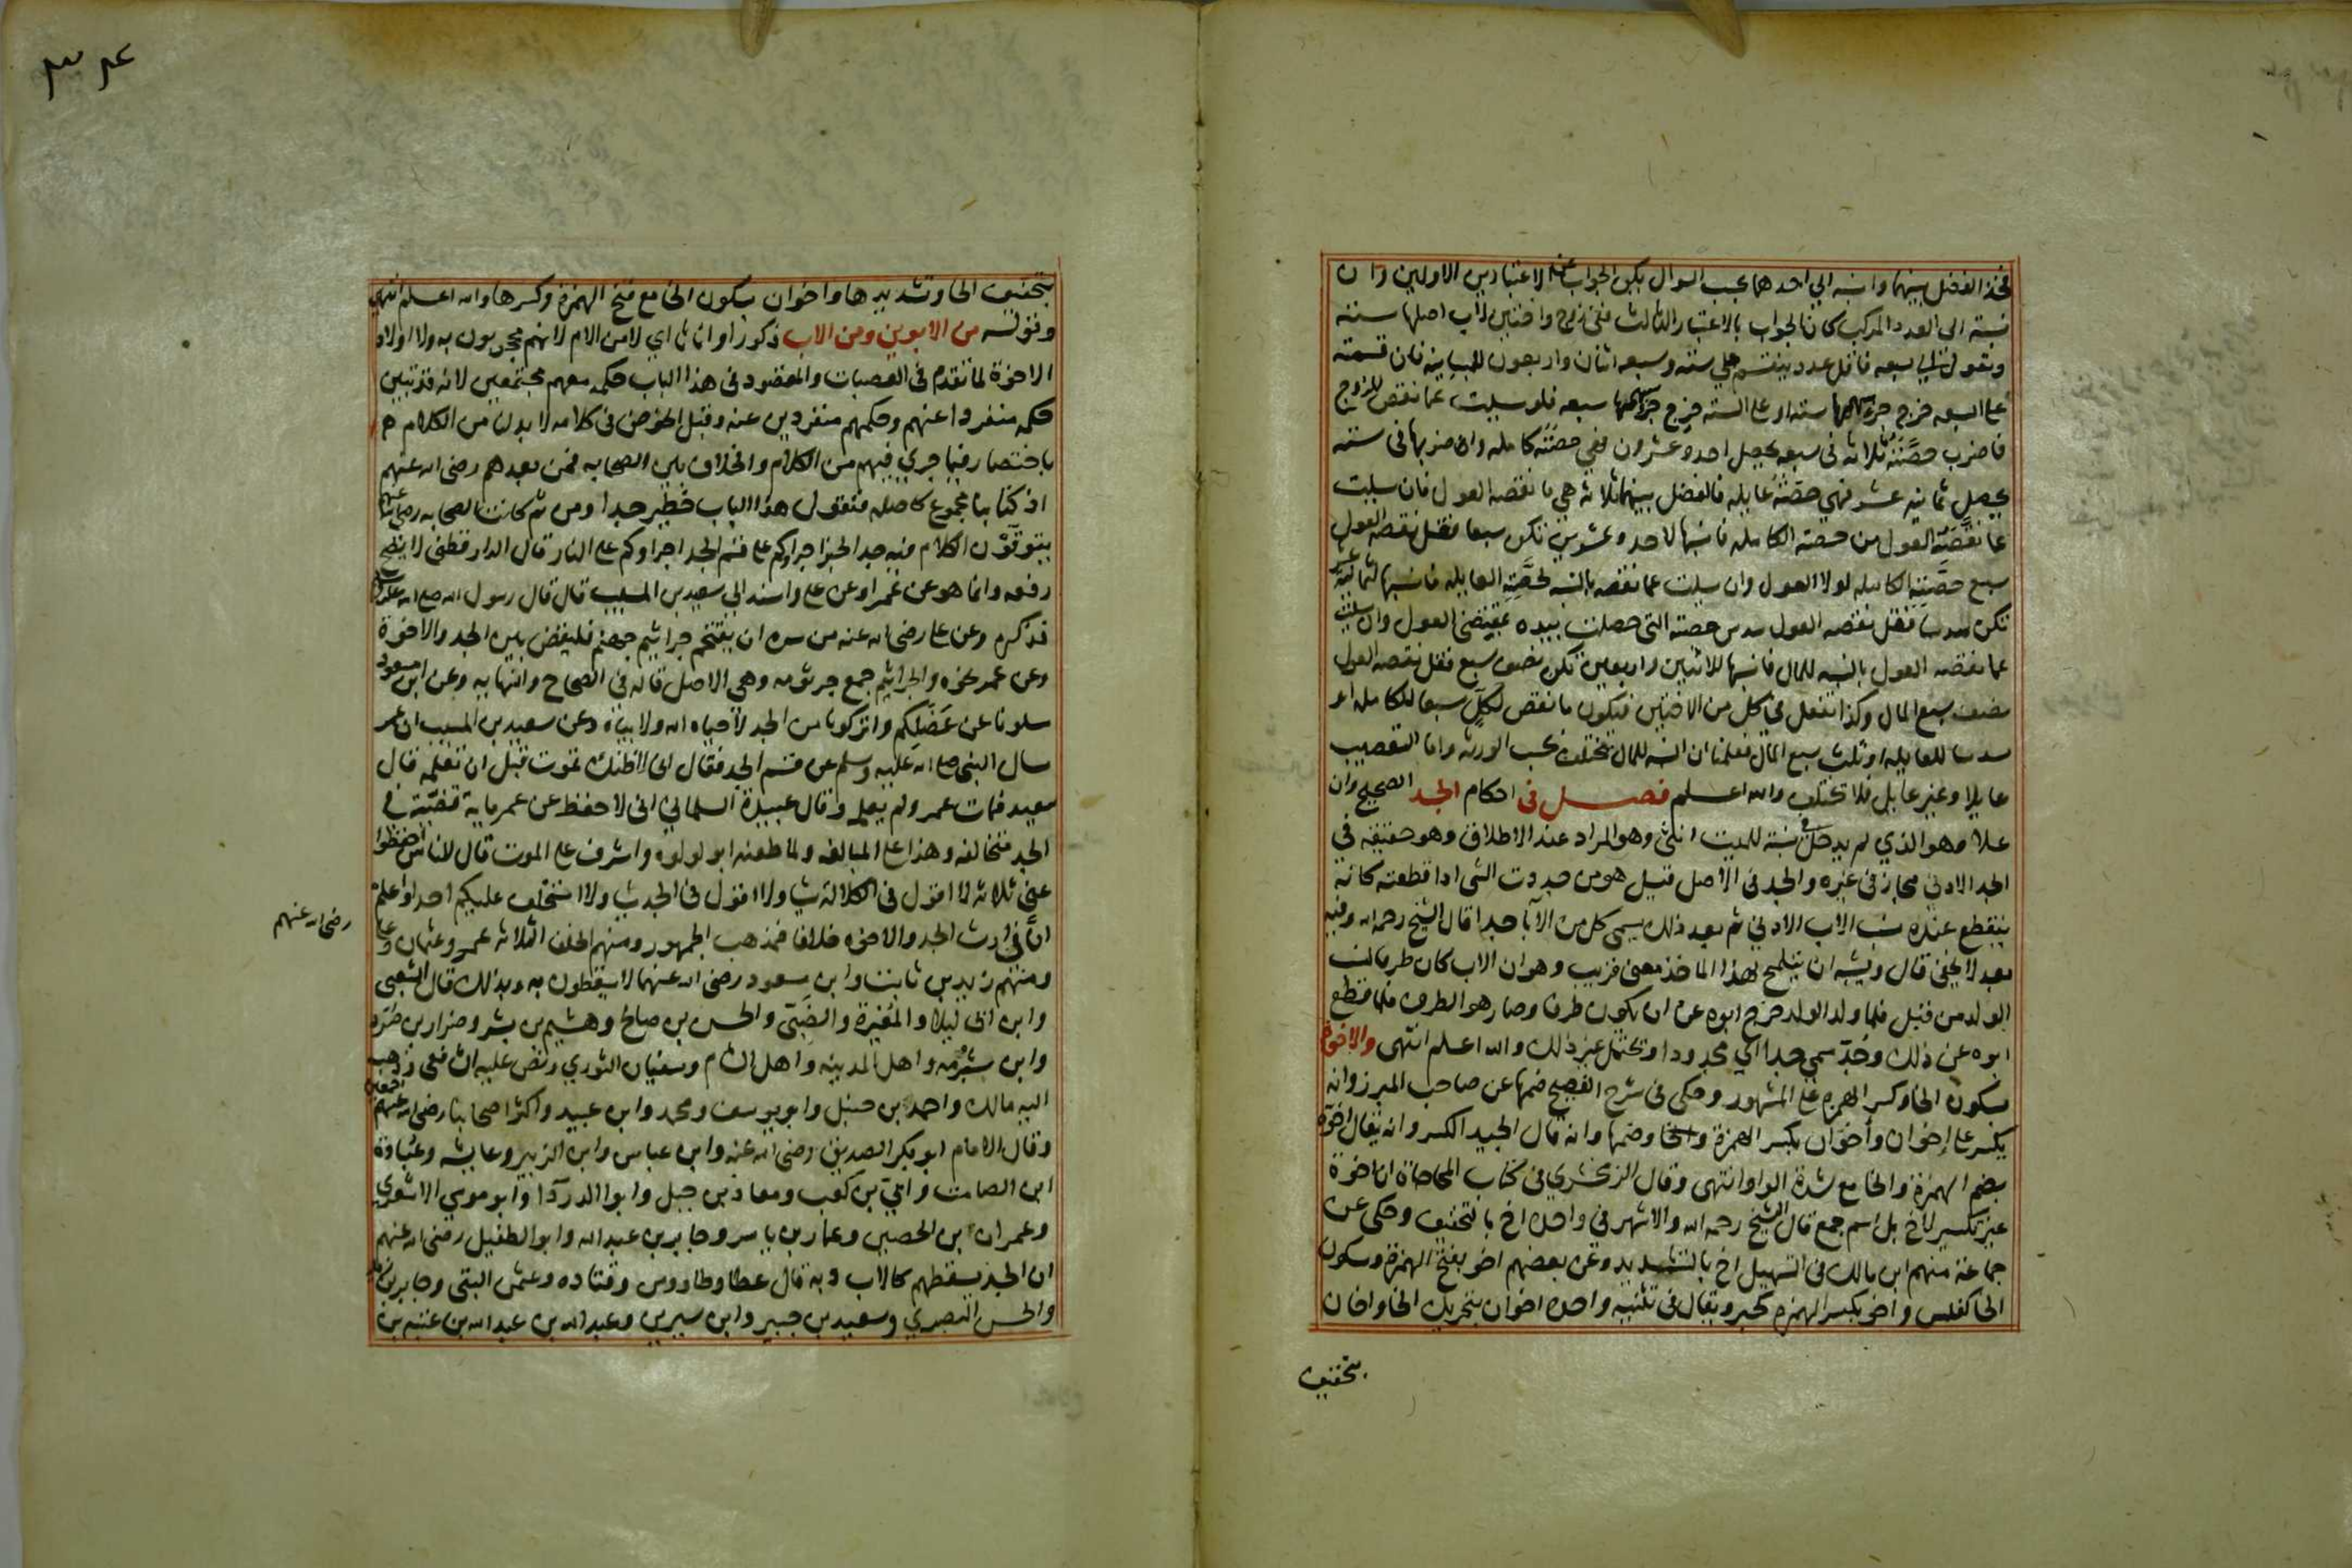 فخذ الفضل بينهما وانسبه الي احدهما بحسب السوال يكن الجواب على الاعتبارين الاولين وان
نسبته الى العدد المركب كان الجواب بالاعتبار الثالث ففي زوج واختين لاب اصلها ستة
وتعول الي سبعه فاقل عدد ينقسم على سته وسبعه اثنان واربعون للمباينه فان قسمته
على السبعه خرج جزء سهمها ستة او على الستة خرج جزء سهمها سبعه فلو سيلت عما نقص للزوج
فاضرب حصته ثلاثه في سبعه يحصل احد وعشرون فهي حصته كامله وان ضربها في سته
يحصل ثمانيه عشر فهي حصته عايله فالفضل بينهما ثلاثه هي ما نقصه العول فان سيلت
عما نقصه العول من حصته الكامله فانسبها لاحد وعشرين تكن سبعا فقل نقصه العول
سبع حصته الكامله لولا العول وان سيلت عما نقصه بالنسبه لحصته العايله فانسبها لثمانية عشر
تكن سدسا فقل نقصه العول سدس حصته التي حصلت بيده بمقتضى العول وان سيلت
عما نقصه العول بالنسبه للمال فانسبها للاثنين واربعين تكن نصف سبع فقل نقصه العول
نصف سبع المال وكذا تفعل في كل من الاختين فيكون ما نقص لكل سبعا للكامله او
سدسا للعايله او ثلث سبع المال فعلمنا ان النسبه للمال تختلف بحسب الورثه واما التعصيب
عايلا وغير عايل فلا تختلف والله اعلم فصل في احكام الجد الصحيح وان
علا وهو الذي لم يدخل في نسبته للميت انثى وهو المراد عند الاطلاق وهو حقيقه في
الجد الادنى مجاز في غيره والجد في الاصل قيل هو من جددت الشي اذا قطعته كانه
ينقطع عنده نسب الاب الادنى ثم بعد ذلك يسمى كل من الآبا جدا قال الشيخ رحمه الله وفيه
بعد لا يخفى قال ويشبه ان يتلمح لهذا الماخذ معنى قريب وهو ان الاب كان طرفا لنسب
الولد من قبل فلما ولد الولد خرج ابوه عن ان يكون طرفا وصار هو الطرف فلما قطع
ابوه عن ذلك وجد سمي جدا اي مجدودا وتحتمل غير ذلك والله اعلم انتهى والاخوة
بسكون الخا وكسر الهمزه على المشهور وحكى في شرح الفصيح ضمها عن صاحب المبرز وانه
يكسر على إخوان وأخوان بكسر الهمزة والخا وضمها وانه قال الجيد الكسر وانه يقال اخوة
بضم الهمزة والخا مع شدة الواو انتهى وقال الزمخشري في كتاب المحاجاة ان اخوة
غير تكسير لاخ بل اسم جمع قال الشيخ رحمه الله والاشهر في واحده اخ بالتخفيف وحكى عن
جماعة منهم ابن مالك في التسهيل اخ بالتشديد وعن بعضهم اخو بفتح الهمزة وسكون
الخا كفلس واخو بكسر الهمزه كحبر ويقال في تثنيته واحده اخوان بتحريك الخا واخان
بتخفيف
٣٠٤
بتخفيف الخا وتشديدها واخوان بسكون الخا مع فتح الهمزة وكسرها والله اعلم انتهى
وقوله من الابوين ومن الاب ذكورا او اناثا اي لا من الام لانهم محجوبون به ولا اولاد
الاخوة لما تقدم في العصبات والمقصود في هذا الباب حكمه معهم مجتمعين لانه قد تبين
حكمه منفردا عنهم وحكمهم منفردين عنه وقبل الخوض في كلامه لا بد من الكلام
باختصار فيما جرى فيهم من الكلام والخلاف بين الصحابه فمن بعدهم رضي الله عنهم
اذ كتابنا مجموع كاصله فنقول هذا الباب خطير جدا ومن ثم كانت الصحابه رضي الله عنهم
يتوقون الكلام فيه جدا لخبر اجراوكم على قسم الجد اجراوكم على النار قال الدارقطني لا يصح
رفعه وانما هو عن عمر او عن علي واسند الي سعيد بن المسيب قال قال رسول الله صلى الله عليه وسلم
فذكره وعن علي رضي الله عنه من سره ان يقتحم جراثيم جهنم فليقض بين الجد والاخوة
وعن عمر نحوه والجراثيم جمع جرثومه وهي الاصل قاله في الصحاح والنهايه وعن ابن مسعود
سلونا عن عضلكم واتركونا من الجد لا حياه الله ولا بياه وعن سعيد بن المسيب ان عمر
سال النبي صلى الله عليه وسلم عن قسم الجد فقال اني لاظنك تموت قبل ان تعلمه قال
سعيد فمات عمر ولم يعلمه وقال عبيدة السلماني اني لاحفظ عن عمر مايه قضية في
الجد متخالفه وهذا على المبالغه ولما طعنه ابو لولوه واشرف على الموت قال للناس احفظوا
عني ثلاثه لا اقول في الكلالة شيا ولا اقول في الجد شيا ولا استخلف عليكم احدا واعلم
ان في ارث الجد والاخوه خلافا فمذهب الجمهور ومنهم الخلفا الثلاثه عمر وعثمان وعلي
رضي الله عنهم
ومنهم زيد بن ثابت وابن مسعود رضي الله عنهما لا يسقطون به وبذلك قال الشعبي
وابن ابي ليلا والمغيرة والضبي والحسن بن صالح وهشيم بن بشر وضرار بن صرد
وابن شبرمه واهل المدينه واهل الشام وسفيان الثوري ونص عليه الشافعي وذهب
اليه مالك واحمد بن حنبل وابو يوسف ومحمد وابن عبيد واكثر اصحابنا رضي الله عنهم اجمعين
وقال الامام ابو بكر الصديق رضي الله عنه وابن عباس وابن الزبير وعايشه وعبادة
ابن الصامت وابي بن كعب ومعاذ بن جبل وابوا الدردآا وابو موسى الاشعري
وعمران ابن الحصين وعمار بن ياسر وجابر بن عبد الله وابو الطفيل رضي الله عنهم
ان الجد يسقطهم كالاب وبه قال عطا وطاووس وقتاده وعثمن البتي وجابر بن زيد
والحسن البصري وسعيد بن جبير وابن سيرين وعبد الله بن عبد الله بن عتبه بن